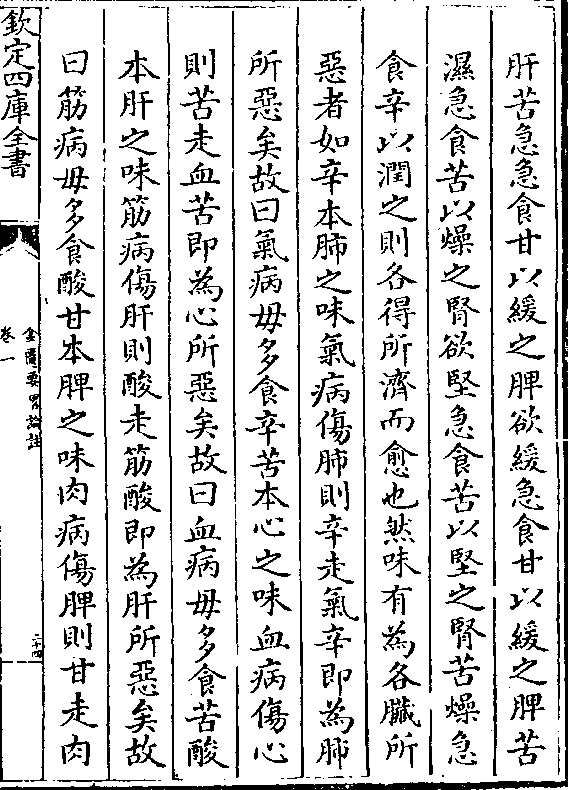 肝苦急急食甘以緩之脾欲緩急食甘以緩之脾苦
濕急食苦以燥之腎欲堅急食苦以堅之腎苦燥急
食辛以潤之則各得所濟而愈也然味有為各臟所
惡者如辛本肺之味氣病傷肺則辛走氣辛即為肺
所惡矣故曰氣病毋多食辛苦本心之味血病傷心
則苦走血苦即為心所惡矣故曰血病毋多食苦酸
本肝之味筋病傷肝則酸走筋酸即為肝所惡矣故
曰筋病毋多食酸甘本脾之味肉病傷脾則甘走肉
欽定四庫全書
金匱要畧論註
卷一
二十四